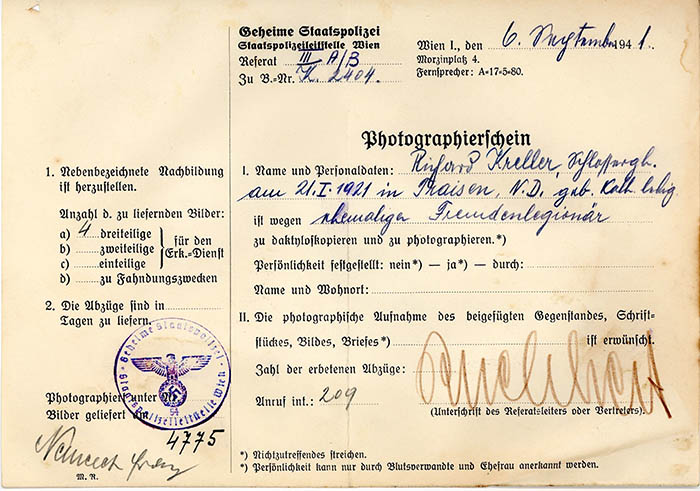 Geheime Staatspolizei
Staatspolizeileitstelle Wien
Referat III A/B
Zu B.-Nr. K. 2404.
Wien I., den 6. September 1941.
Morzinplatz 4.
Fernsprecher: A=17=5=80.
Photographierschein
1. Nebenbezeichnete Nachbildung
ist herzustellen.
Anzahl d. zu liefernden Bilder:
a) 4 dreiteilige
b) zweiteilige
c) einteilige
für den
Erk.=Dienst
d) zu Fahndungszwecken
2. Die Abzüge sind in
Tagen zu liefern.
Photographiert unter Nr.
Bilder geliefert am
4775
M. R.
Geheime Staatspolizei
Staatspolizeileitstelle Wien
54
I. Name und Personaldaten: Richard Kreller, Schlossergh.
am 21.I.1921 in Traisen, N.D. geb. kath. ledig
ist wegen ehemaliger Fremdenlegionär
zu daktyloskopieren und zu photographieren.*)
Persönlichkeit festgestellt: nein*) — ja*) — durch:
Name und Wohnort:
II. Die photographische Aufnahme des beigefügten Gegenstandes, Schrift=
stückes, Bildes, Briefes*) ist erwünscht.
Zahl der erbetenen Abzüge:
Anruf int.: 209
(Unterschrift des Referatsleiters oder Vertreters).
*) Nichtzutreffendes streichen.
*) Persönlichkeit kann nur durch Blutsverwandte und Ehefrau anerkannt werden.